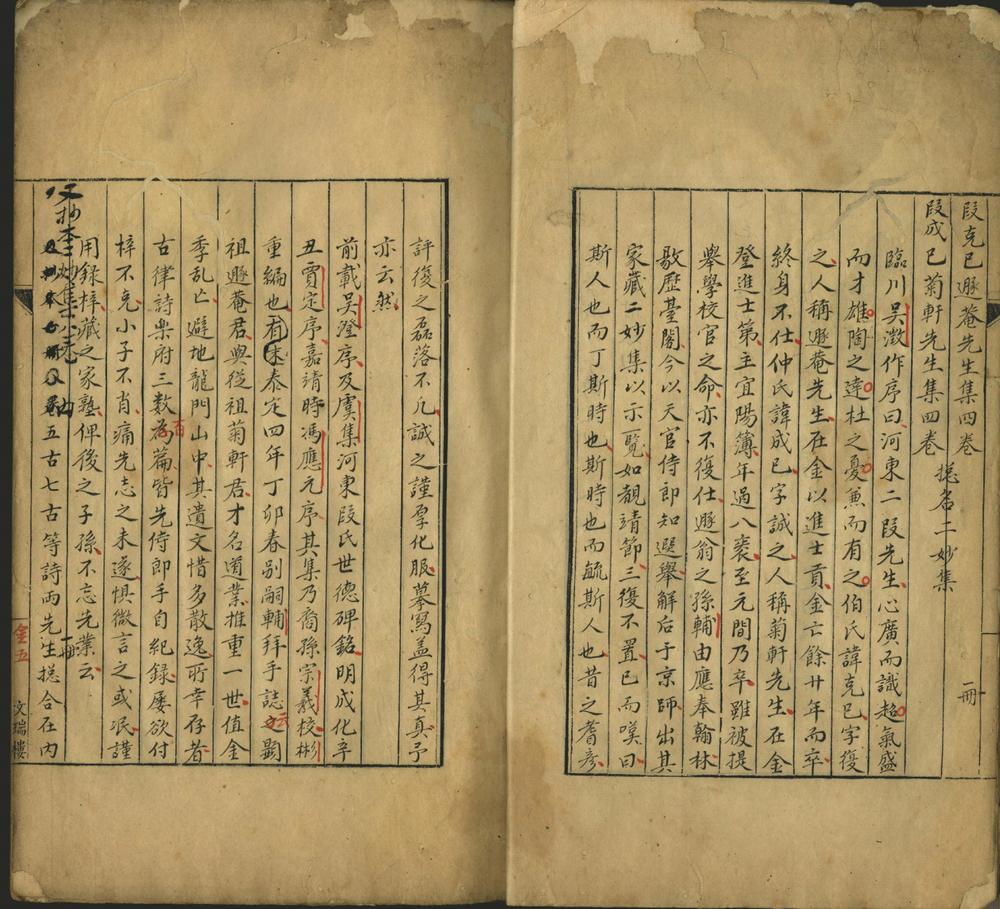 段克己遯菴先生集四卷
段成己菊軒先生集四卷
總名二妙集
一冊
臨川吳澂作序曰河東二段先生心廣而識超氣盛
而才雄陶之達杜之憂蒐而有之伯氏諱克已字復
之人稱遯菴先生在金以進士貢金亡餘廿年而卒
終身不仕仲氏諱成己字誠之人稱菊軒先生在金
登進士第主宜陽簿年過八袠至元間乃卒雖被提
舉學校官之命亦不復仕遯翁之孫輔由應奉翰林
敭歷臺閣今以天官侍郎知選舉解后于京師出其
家藏二妙集以示一覽如覩靖節三復不置已而嘆曰
斯人也而丁斯時也斯時也而毓斯人也昔之耆彥
評復之磊落不凡誠之謹厚化服摹寫盖得其真予
亦云然
前載吳澄序及虞集河東段氏世德碑銘明成化辛
丑賈定序嘉靖時馮應元序其集乃裔孫宗義校彬
重編也有末泰定四年丁卯春別嗣輔拜手誌之云顯
祖遯菴君與從祖菊軒君才名道業推重一世值金
季乱亡避地龍門山中其遺文惜多散逸所幸存者
古律詩樂府三數百篇皆先侍郎手自紀録屡欲付
梓不克小子不肖痛先志之未遂惧微言之或泯謹
用録梓藏之家塾俾後之子孫不忘先業云
又抄本二妙集
五古七古等詩兩先生總合在内
一冊
金五
文瑞樓